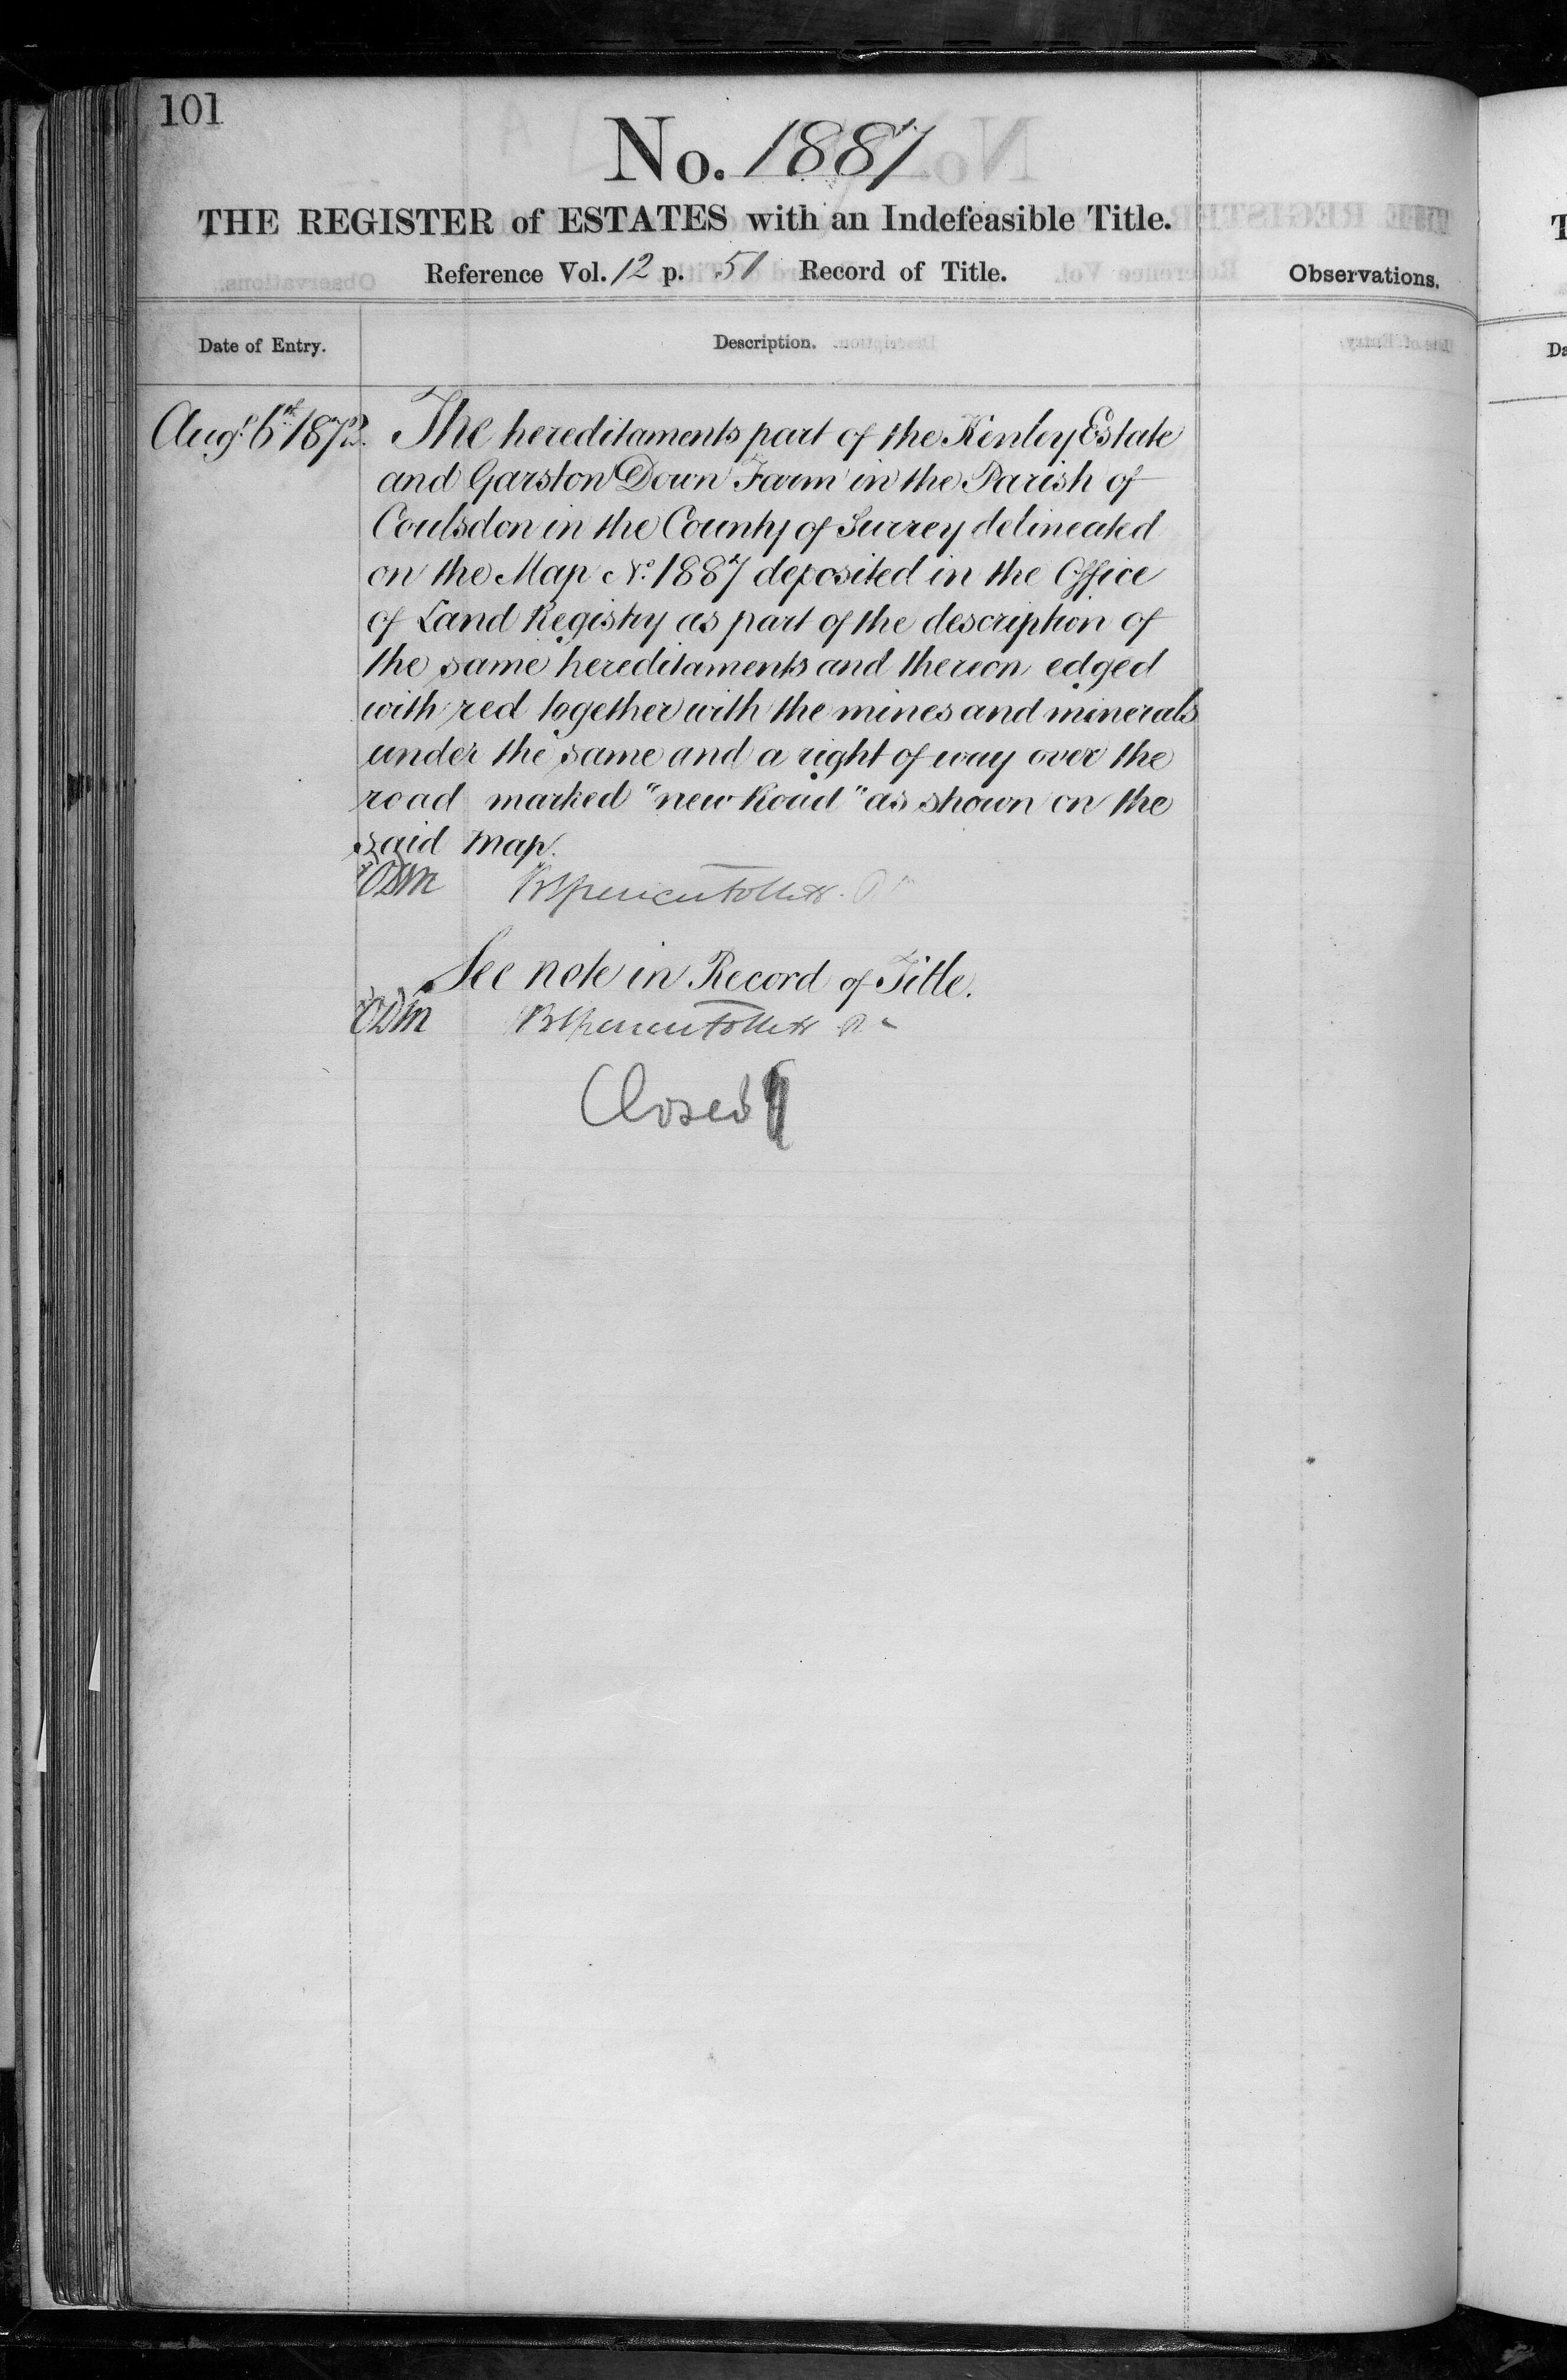 101
No. 1887
THE REGISTER of ESTATES with an Indefeasible Title.
Reference Vol. 12 p. 51 Record of Title.
Observations.
Date of Entry.
Description.
Augt. 6th 1872.
The hereditaments part of the Kenley Estate
and Garston Down Farm in the Parish of
Coulsdon in the County of Surrey delineated
on the Map No. 1887 deposited in the Office
of Land Registry as part of the description of
the same hereditaments and thereon edged
with red together with the mines and minerals
under the same and a right of way over the
road marked "new Road" as shown on the
said map.
See note in Record of Title.
Closed